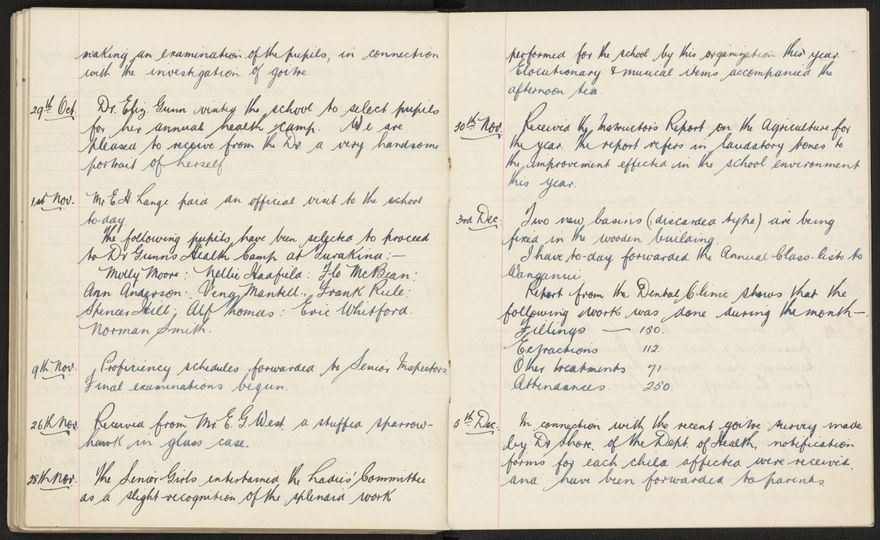 making an examination of the pupils, in connection
with the investigation of goitre.
29th Oct. Dr. Eliz. Gunn visited the school to select pupils
for her annual health camp. We are
pleased to receive from the Dr. a very handsome
portrait of herself
1st Nov. Mr E. H. Lange paid an official visit to the school
to-day
The following pupils have been selected to proceed
to Dr Gunn's Health Camp at Turakina:-
Molly Moore: Nellie Hadfield: Flo McBean:
Ann Anderson: Mantell: Frank Rule:
Spencer Hill: Alf Thomas: Eric Whitford.
Norman Smith.
9th Nov. Proficiency schedules forwarded to Senior Inspectors
Final examinations begun.
26th Nov. Received from Mr E. G. West a stuffed sparrow-
hawk in glass case.
28th Nov. The Senior Girls entertained the Ladies' Committee
as a slight recognition of the splendid work
performed for the school by this organization this year.
Elocutionary & musical items accompanied the
afternoon tea.
30th Nov. Received the Instructor's Report on the Agriculture for
the year. The report refers in laudatory tones to
the improvement effected in the school environment
this year.
3rd Dec. Two new basins (discarded type) are being
fixed in the wooden building.
I have to-day forwarded the Annual Class-lists to
Wanganui.
Report from the Dental Clinic shows that the
following work was done during the month-
Fillings — 150.
Extractions 112.
Other treatments 71
Attendances. 250.
5th Dec. In connection with the recent goitre survey made
by Dr Shore, of the Dept. of Health, notification
forms for each child affected were received
and have been forwarded to parents